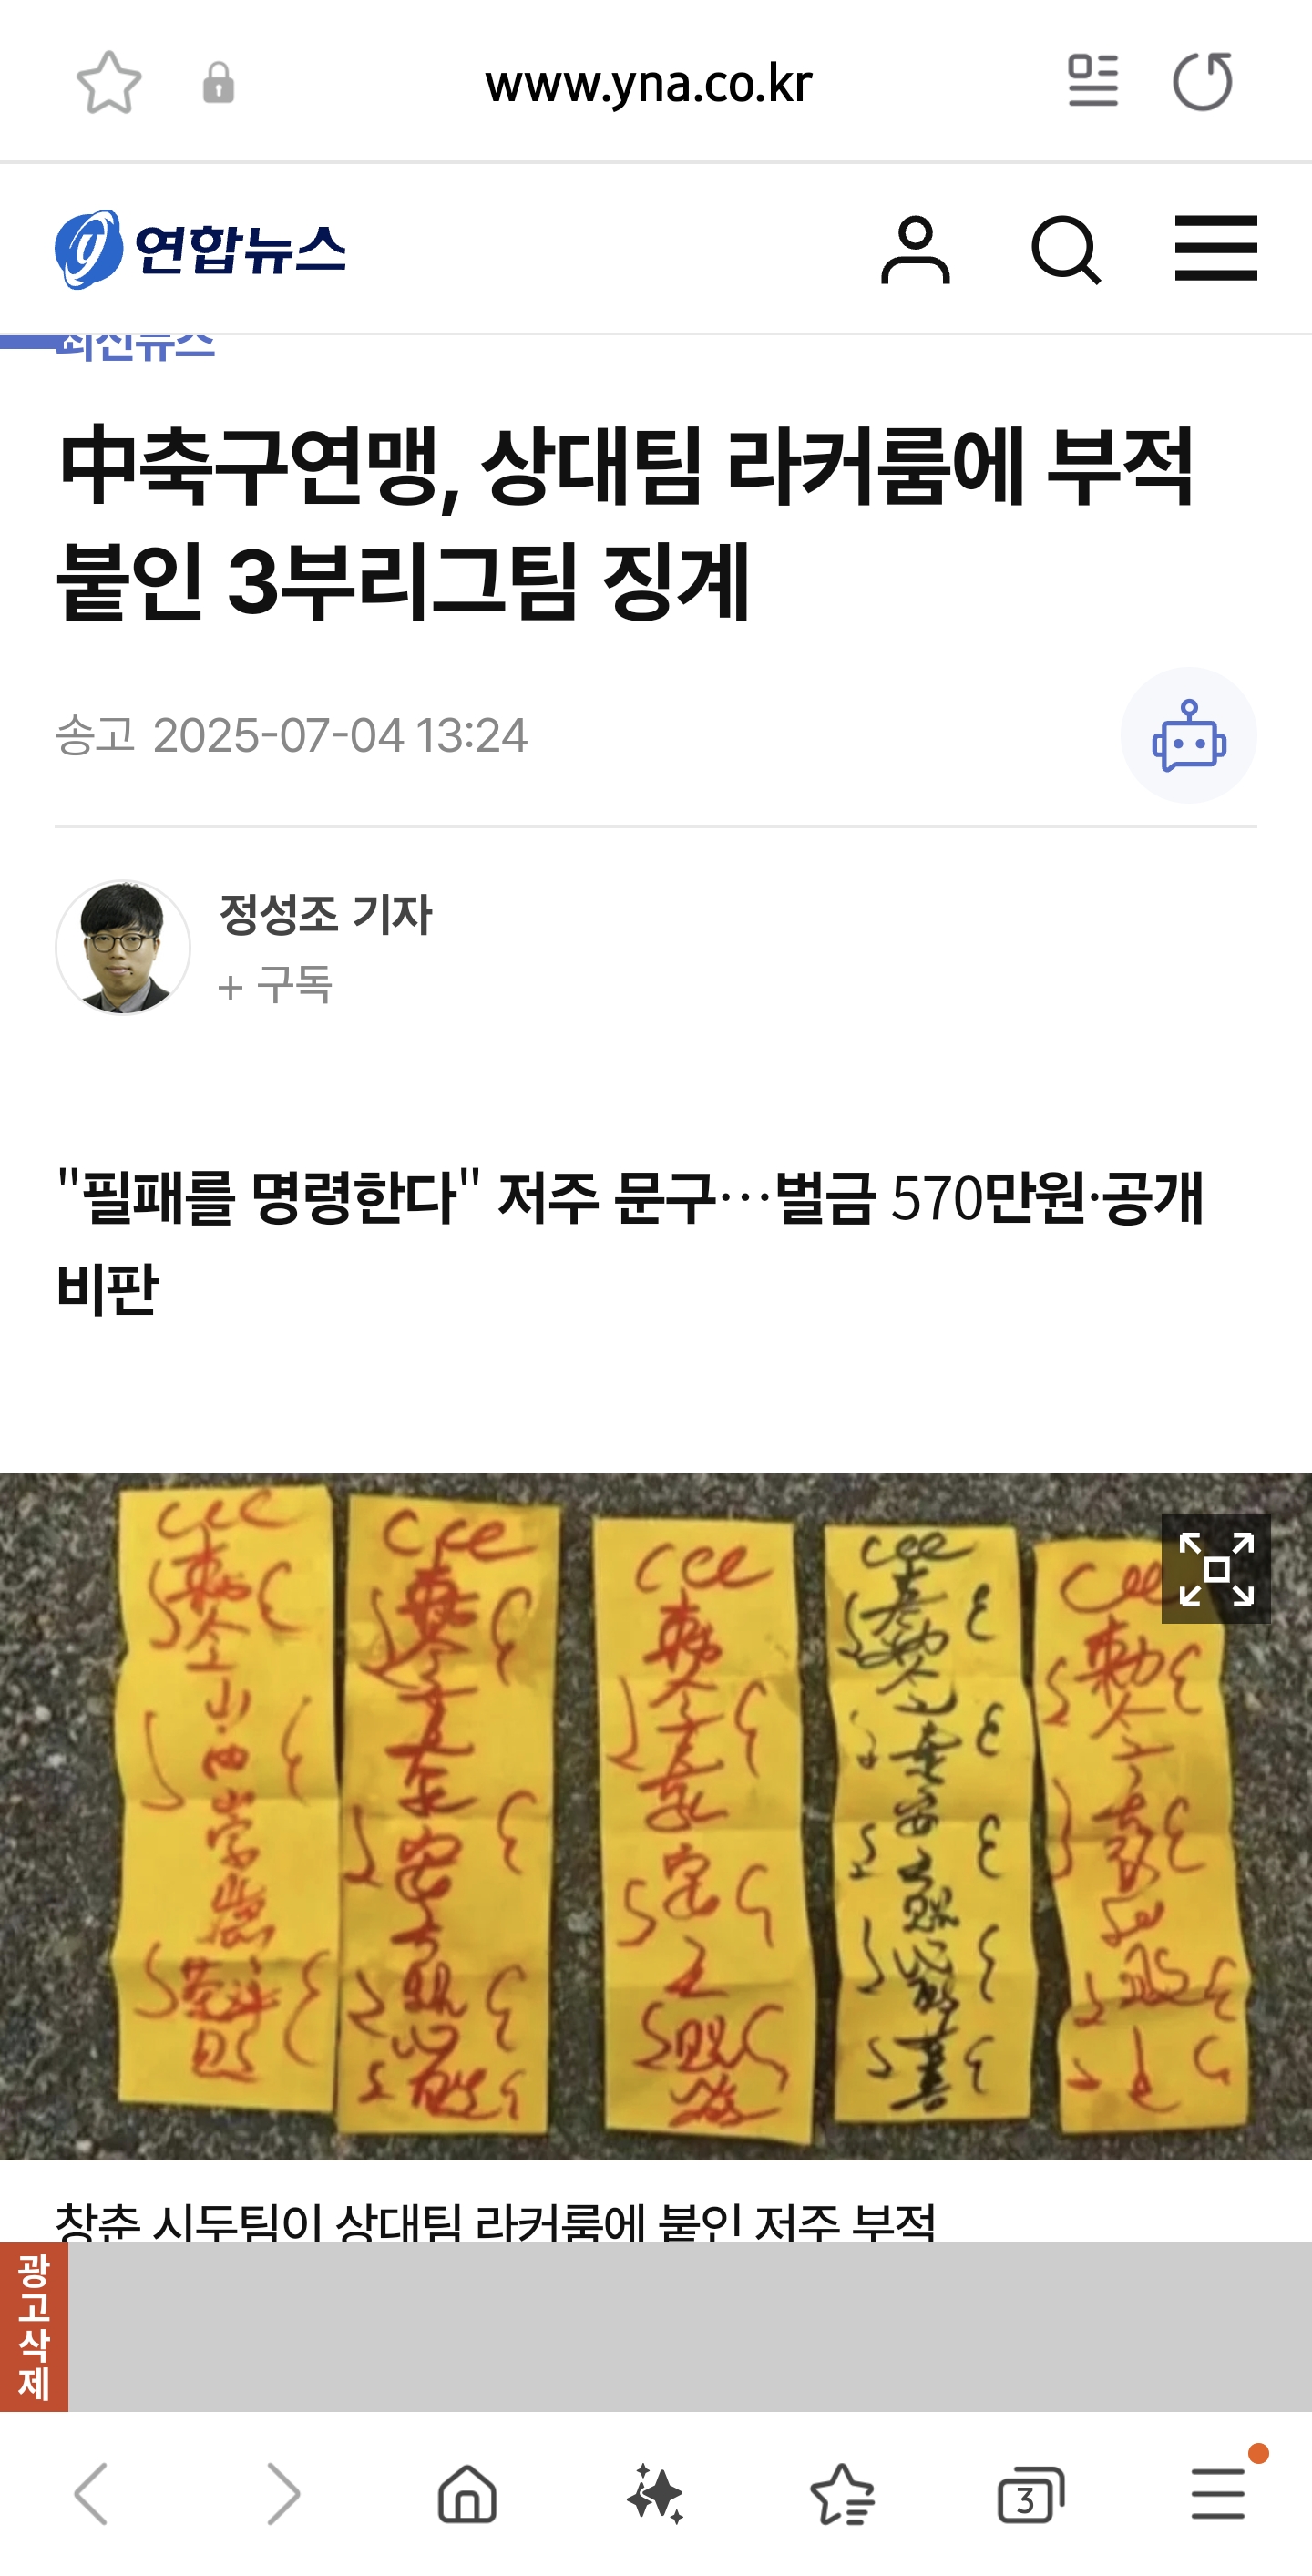 www.yna.co.kr
연합뉴스
최신뉴스
中축구연맹, 상대팀 라커룸에 부적
붙인 3부리그팀 징계
송고 2025-07-04 13:24
정성조 기자
+ 구독
"필패를 명령한다" 저주 문구…벌금 570만원·공개
비판
창춘 시두팀이 상대팀 라커룸에 붙인 저주 부적
광고삭제
3